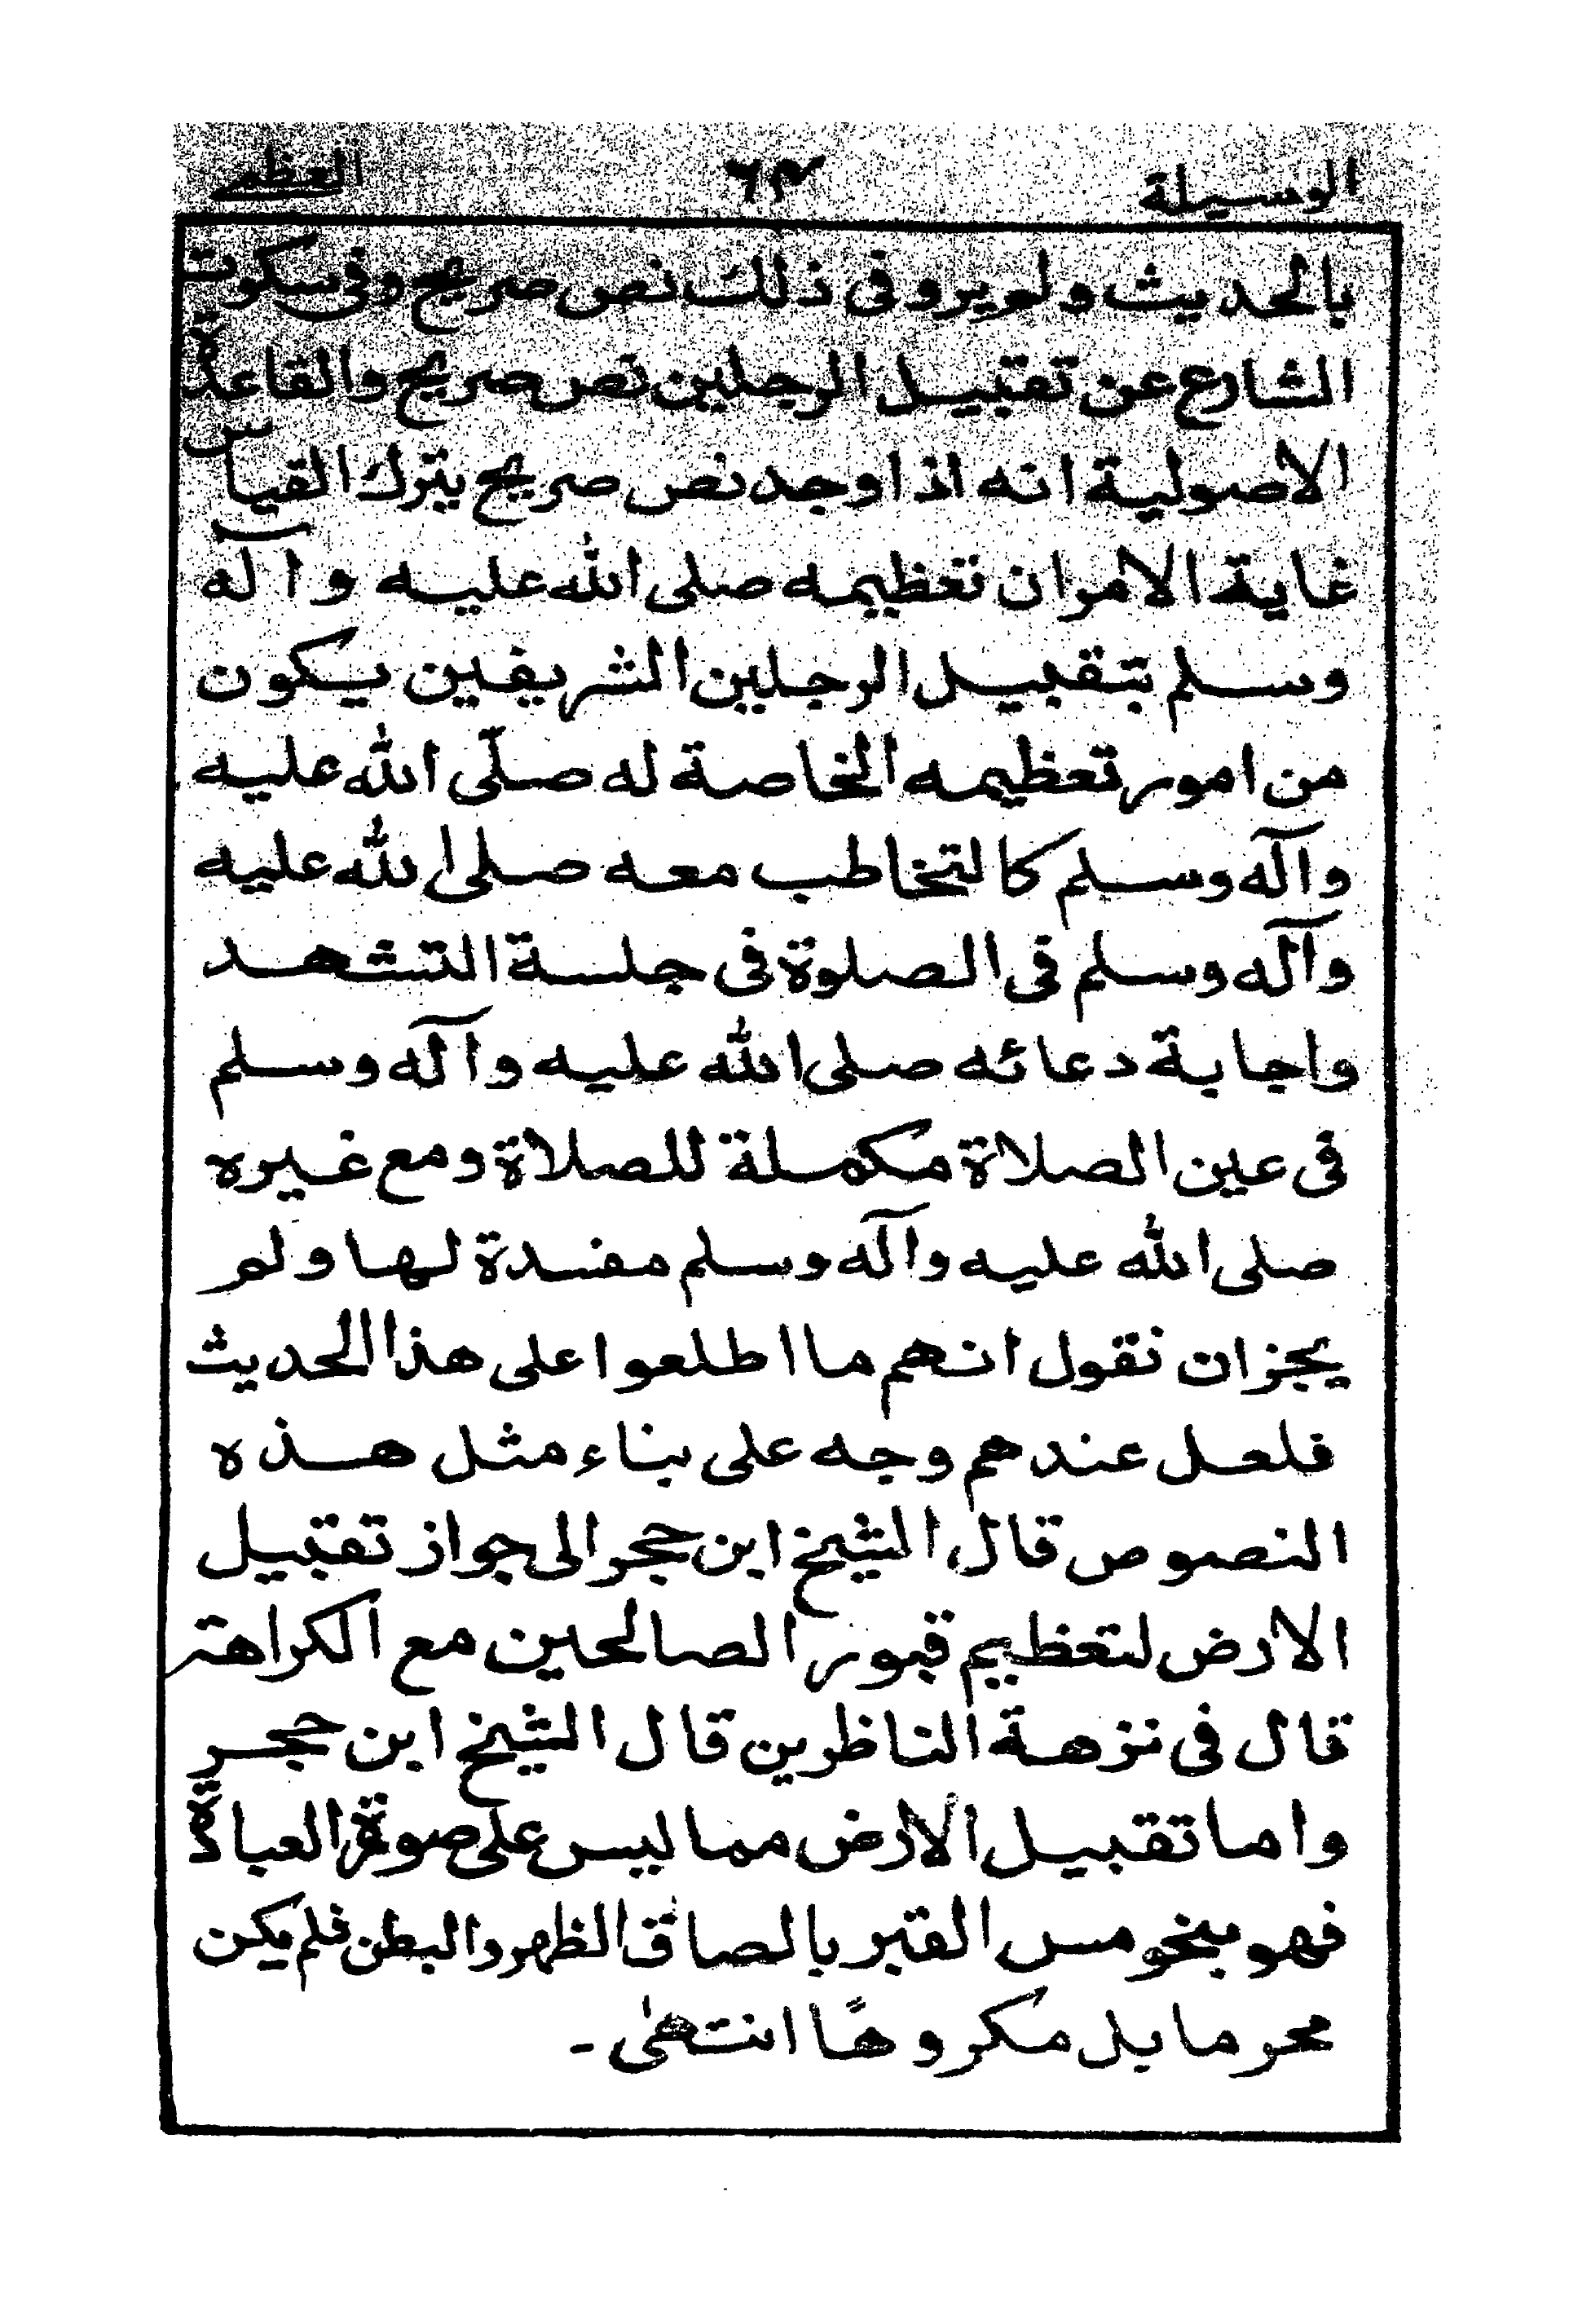 الوسيلة ٦٣ العظمى
بالحديث ولم يرو فى ذلك نص صريح وفى سكوت
الشارع عن تقبيل الرجلين نص صريح والقاعدة
الاصولية انه اذا وجد نص صريح يترك القياس
غاية الامر ان تعظيمه صلى الله عليه وآله
وسلم بتقبيل الرجلين الشريفين يكون
من امور تعظيمه الخاصة له صلّى الله عليه
وآله وسلم كالتخاطب معه صلى الله عليه
وآله وسلم فى الصلوة فى جلسة التشهد
واجابة دعائه صلى الله عليه وآله وسلم
فى عين الصلاة مكملة للصلاة ومع غيره
صلى الله عليه وآله وسلم مفسدة لها ولم
يجز ان نقول انهم ما اطلعوا على هذا الحديث
فلعل عندهم وجه على بناء مثل هذه
النصوص قال الشيخ ابن حجر الى جواز تقبيل
الارض لتعظيم قبور الصالحين مع الكراهة
قال فى نزهة الناظرين قال الشيخ ابن حجر
واما تقبيل الارض مما ليس على صورة العبادة
فهو بنحو مس القبر بالصاق الظهر والبطن فلم يكن
محرما بل مكروهًا انتهى ـ